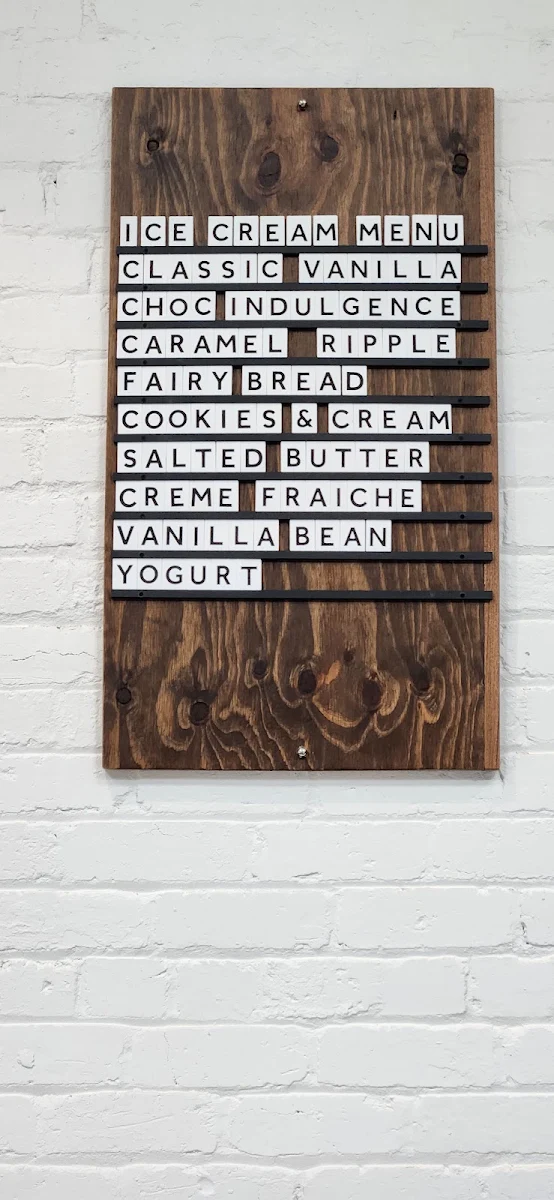 ICE CREAM MENU
CLASSIC VANILLA
CHOC INDULGENCE
CARAMEL RIPPLE
FAIRY BREAD
COOKIES & CREAM
SALTED BUTTER
CREME FRAICHE
VANILLA BEAN
YOGURT